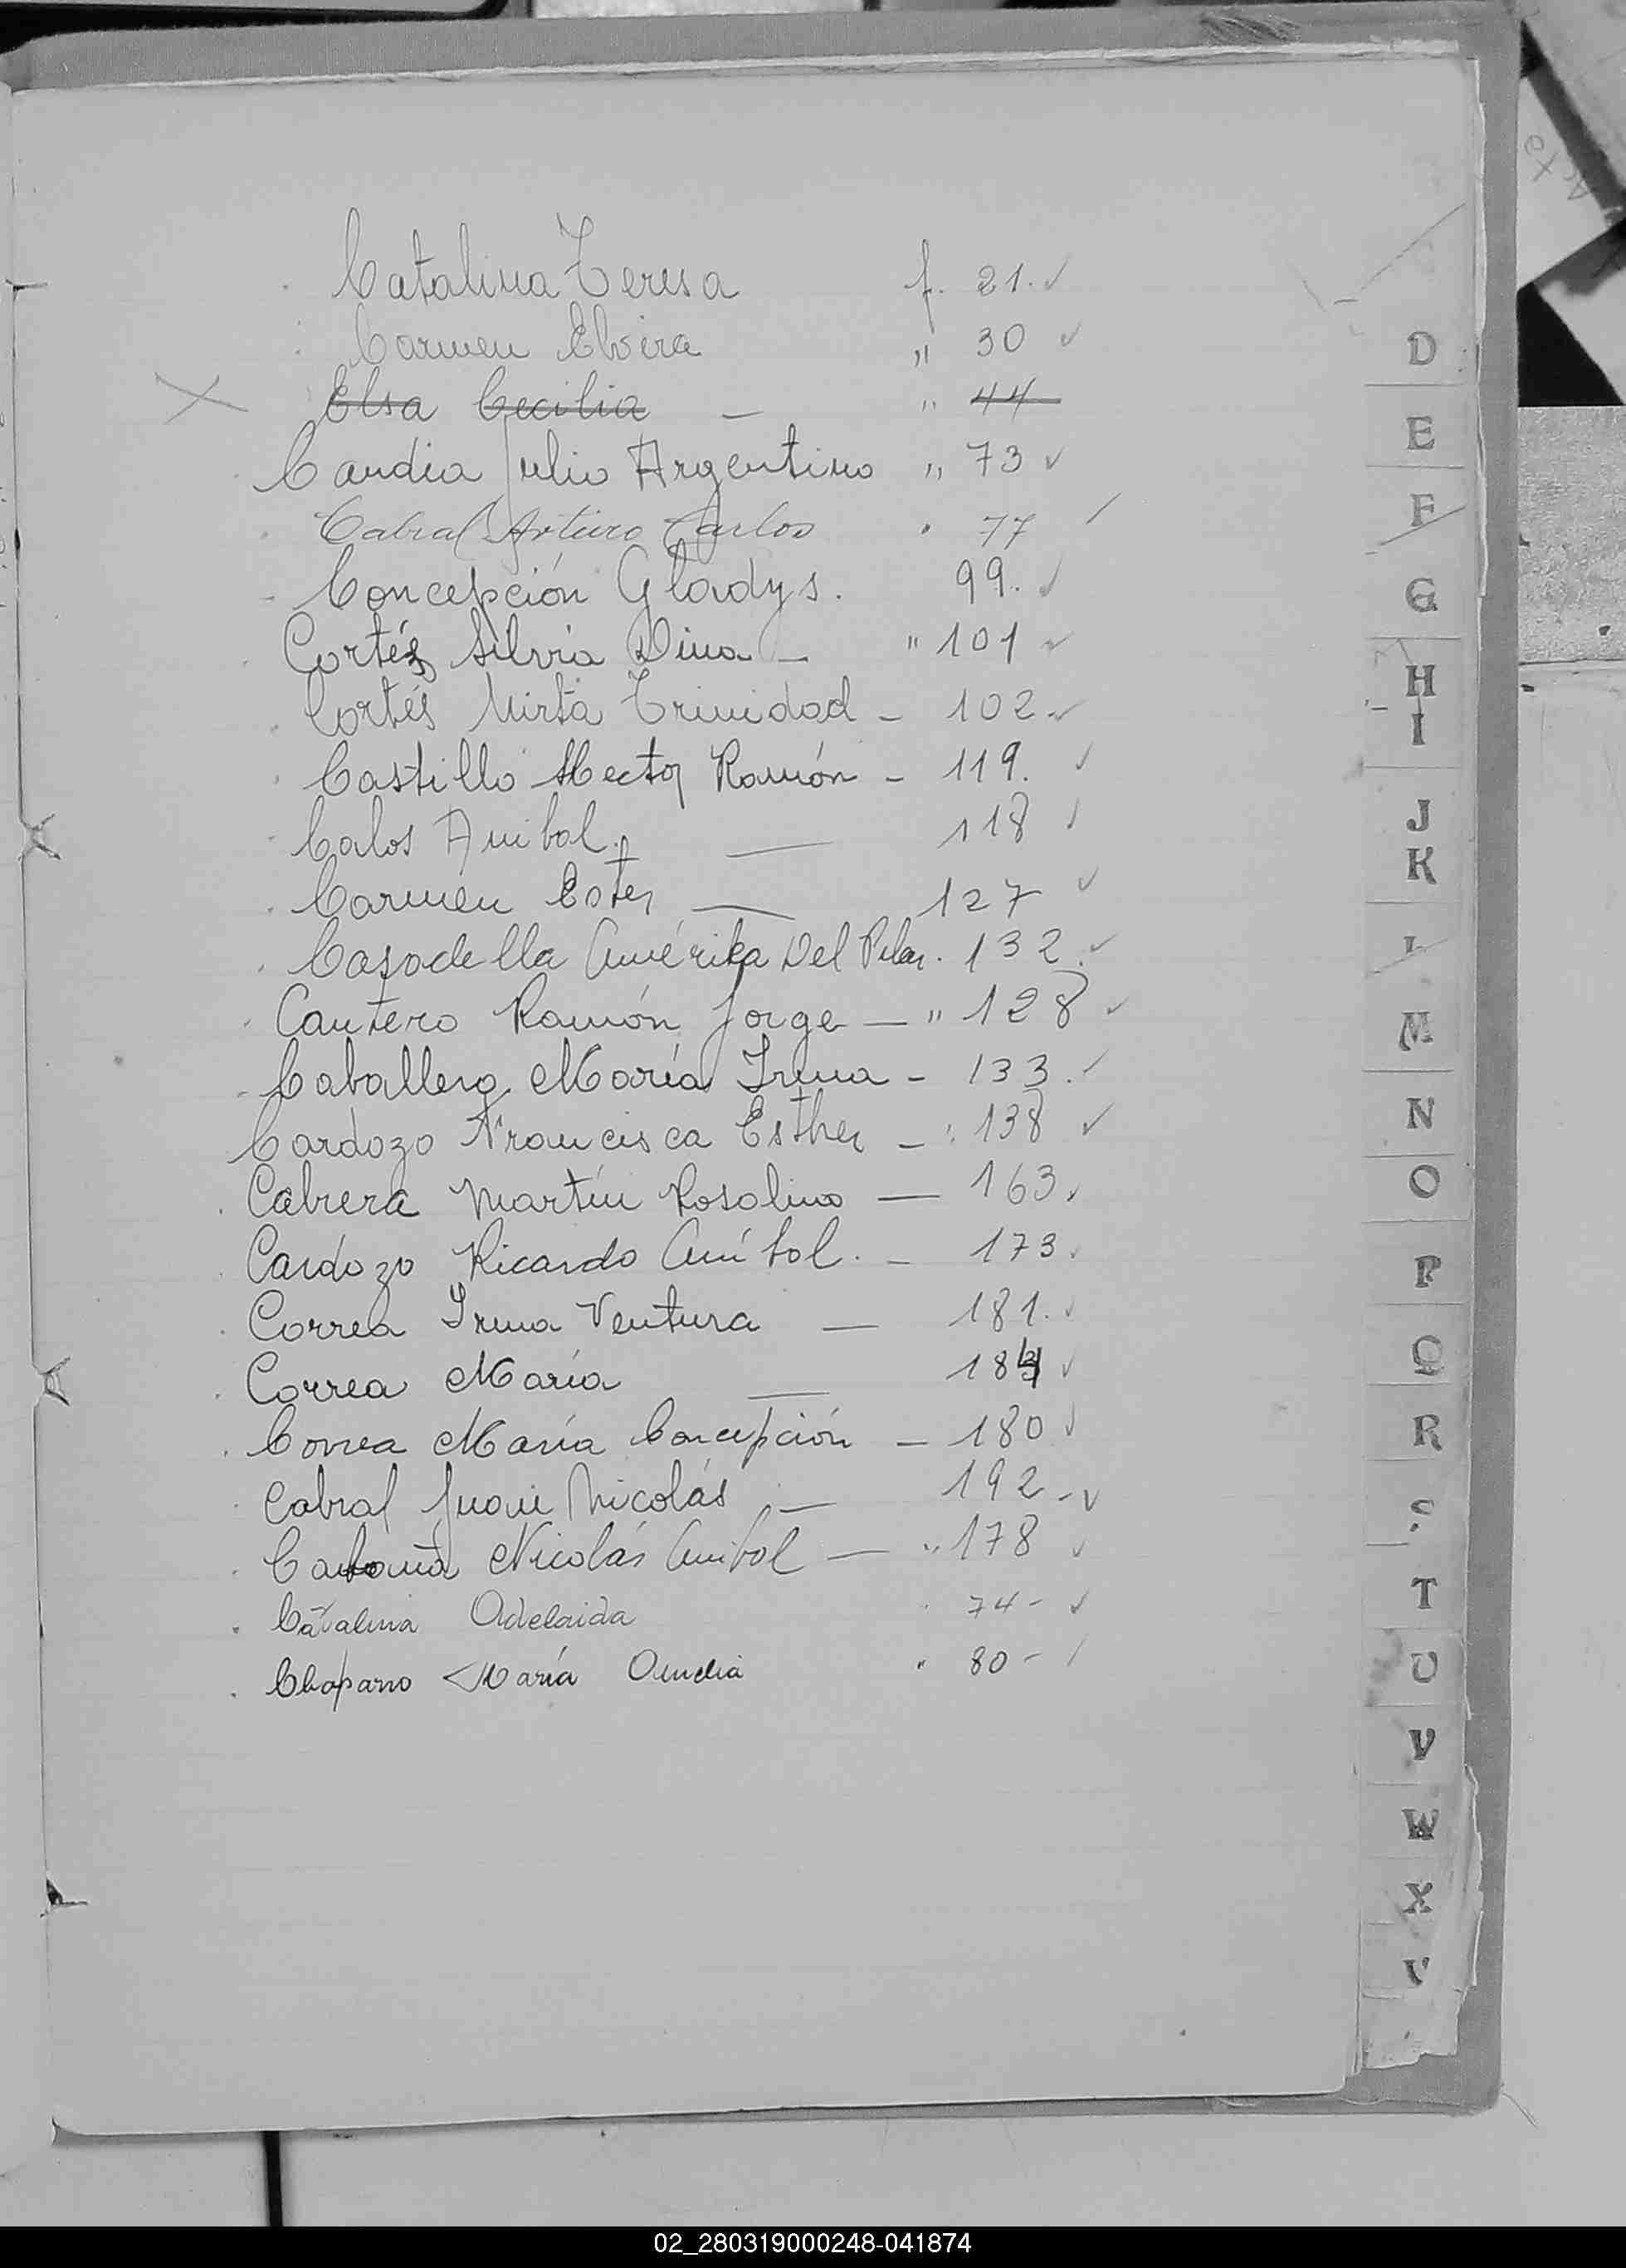 Catalina Teresa f. 21. ✓
Carmen Elvira " 30 ✓
Elsa Cecilia — " 44
Candia Julio Argentino " 73 ✓
Cabral Arturo Carlos " 77
Concepción Gladys. 99. ✓
Cortés Silvia Dina — " 101 ✓
Cortés Mirta Trinidad - 102 ✓
Castillo Hector Ramón - 119. ✓
Calos Anibal. — 118 ✓
Carmen Ester — 127 ✓
Casadella Amérika Del Pilar. 132. ✓
Cantero Ramón Jorge — " 128 ✓
Caballero María Irma - 133. ✓
Cardozo Francisca Esther - " 138 ✓
Cabrera Martín Rosalino — 163.
Cardozo Ricardo Aníbal. - 173.
Correa Irma Ventura — 181. ✓
Correa María — 18 ✓
Correa María Concepción - 180 ✓
Cabral Juan Nicolás — 192 - ✓
Nicolás Anibal — " 178 ✓
Catalina Adelaida 74 - ✓
Chaparro María Amelia " 80 -
D
E
F
G
H
I
J
K
L
M
N
O
P
Q
R
S
T
U
V
W
X
02_280319000248-041874